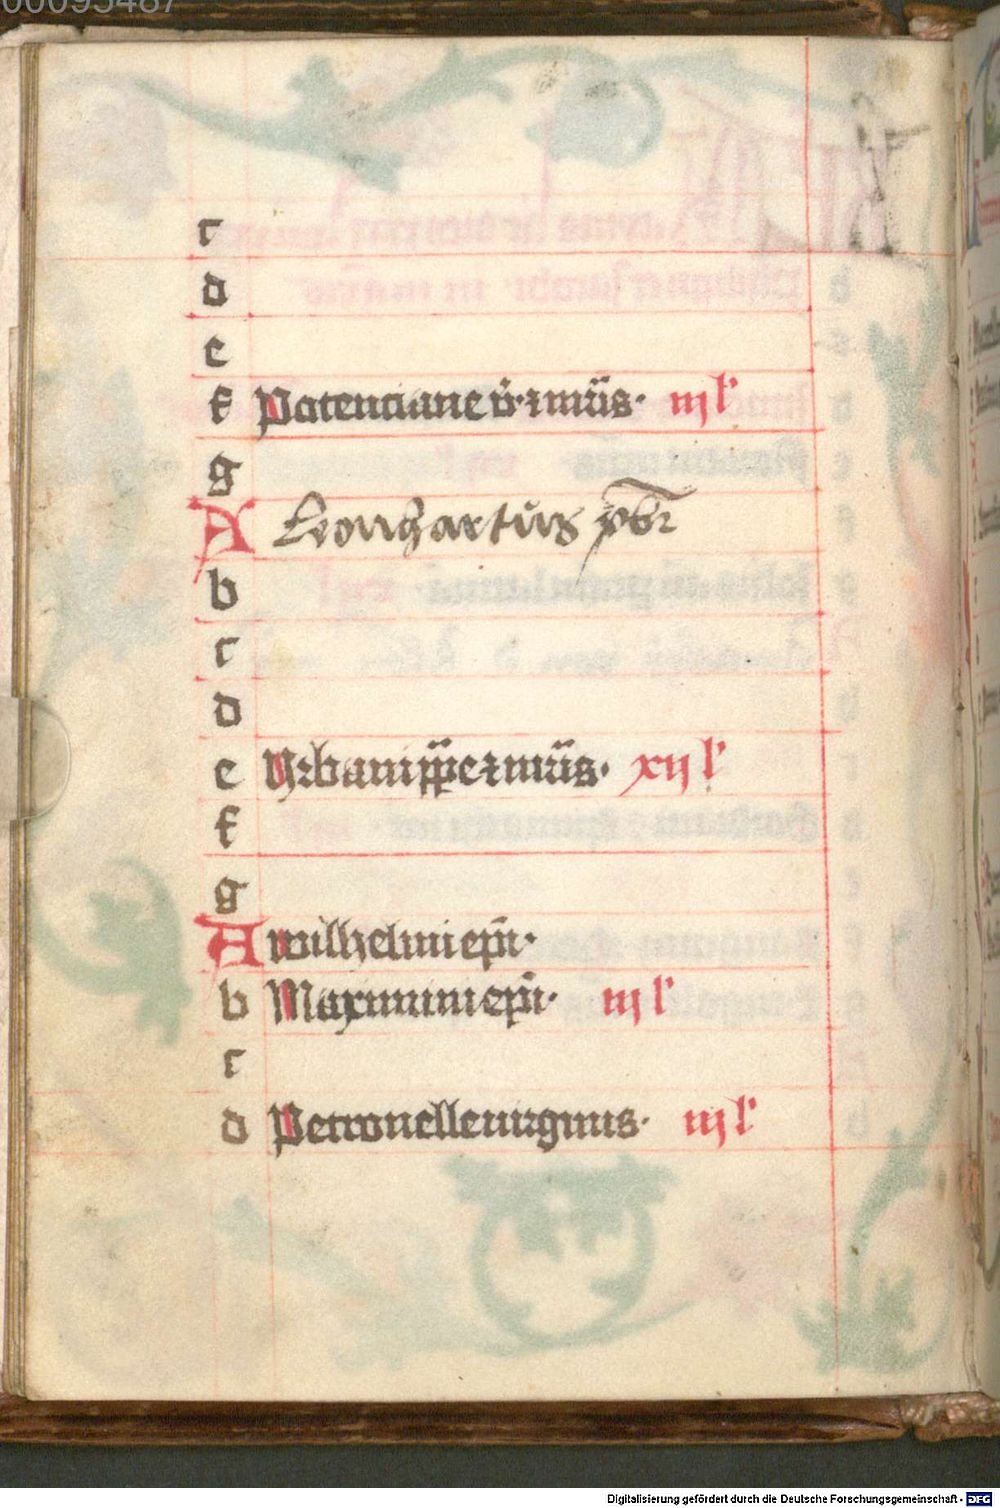 00095487
c
d
e
f Potentiane v̄ ⁊ mr̄is · iij l'
g
A Leonhartus pbr̄
b
c
d
e Vrbani pp̄e ⁊ mr̄is · xij l'
f
g
A wilhelmi ep̄i ·
b Maximini ep̄i · iij l'
c
d Petronelle uirginis · iij l'
Digitalisierung gefördert durch die Deutsche Forschungsgemeinschaft - DFG